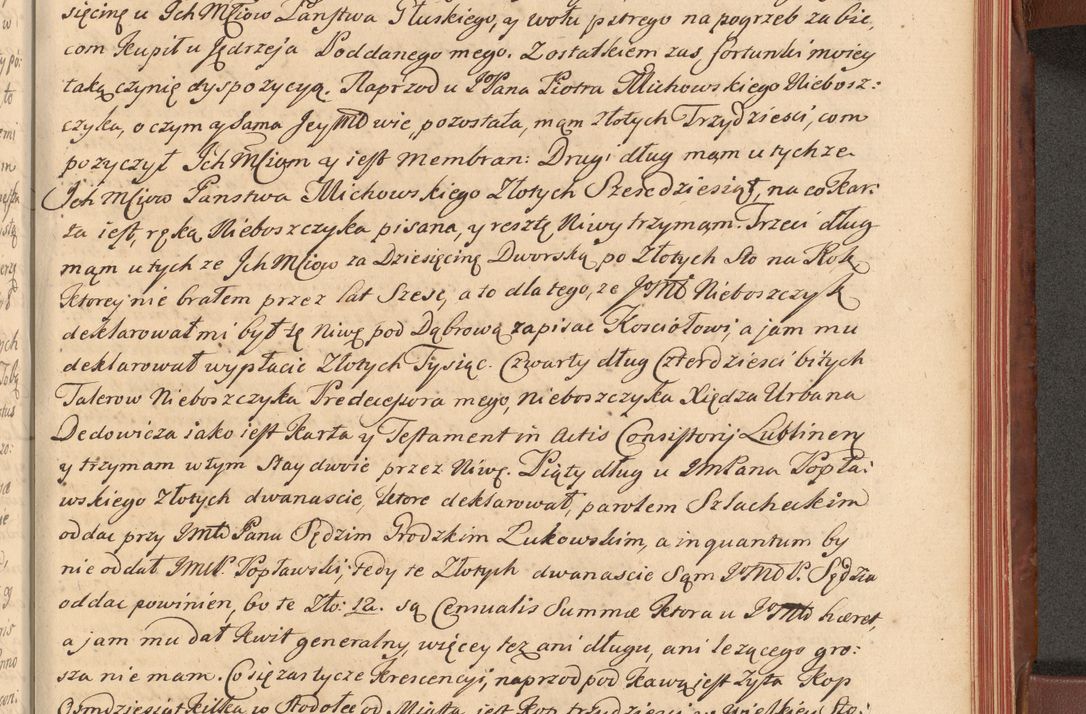 sięcinę u Ich Mściow Panstwa Głuskiego, ay wołu pstrego na pogrzeb zabić,
com kupił u Jędrzeja Poddanego mego. Zostatkiem zas fortunki moiey
taką czynię dyspozycyą. Naprzod u JPana Piotra Michowskiego Niebosz:
czyka, o czym ay Sama Jey Mć wie, pozostała, mąm złotych Trzydziesci, com
pozyczył Ich Mściom ay iest Membran: Drugi dług mąm u tychze
Ich Mściow Panstwa Michowskiego Złotych Szescdziesiąt, na co Kar:
ta iest, ręką Nieboszczyka pisana, y resztę Niwy trzymąm. Trzeci dług
mąm u tych ze Ich Mściow za Dziesięcinę Dworską po Złotych Sto na Rok
Ktorey nie brałem przez lat Szesc, a to dla tego, ze JoMć Nieboszczyk
deklarował mi był tę Niwę pod Dąbrową zapisac Kosciołowi, a jam mu
deklarował wypłacic Złotych Tysiąc. Czwarty dług Czterdziesci bitych
Talerow Nieboszczyka Predecessora mego, nieboszczyka Xiędza Urbana
Dedowicza iako iest Karta y Testament in Actis Consistorij Lublinen
y trzymam w tym Stay dwoie przez Niwę. Piąty dług u JmPana Popła:
wskiego złotych dwanascie, ktore deklarował, parolem Szlacheckim
oddac przy Jmć Panu Sędzim Grodzkim Łukowskim, a in quantum by
nie oddał JmP. Popławski, tedy te Złotych dwanascie Sąm JoMć P. Sędzia
oddac powinien, bo te Zło: 12. są Censualis Summæ ktora u JoMć hæret,
a jam mu dał Kwit generalny, więcey tez ani długu, ani lezącego gro:
sza nie mam. Co się zas tycze Krescencyi, naprzod pod Kawą jest Zyta Kop
Osmdziesiąt kilka w Stodołce od Miasta jest Kop trzydziesci